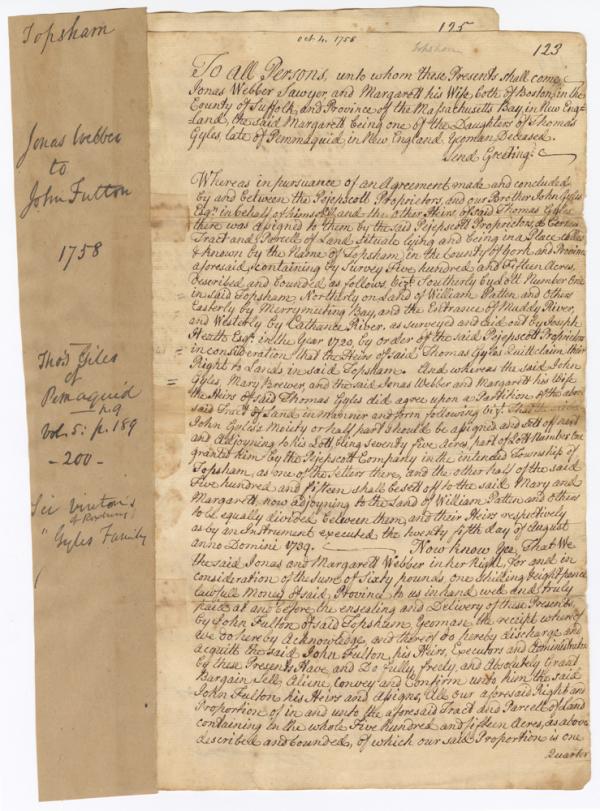 Topsham
Jonas Webber
to
John Fulton
1758
Thos Giles
of
Pemaquid
Vol. 5: p. 189
- 200 -
See Vinton's
Gyles Family
125
Oct. 4. 1758
Topsham
123
To All Persons, unto whom these Presents shall come
Jonas Webber Sawyer, and Margarett his Wife both of Boston, in the
County of Suffolk, and Province of the Massachusetts Bay in New Eng-
Land, the said Margarett being one of the Daughters of Thomas
Gyles, late of Pemmaquid in New England Yeoman Deceased
Send Greeting
Whereas in pursuance of an Agreement made and concluded
by and between the Pejepscott Proprietors, and our Brother John Gyles
Esqr. in behalf of himself and the other Heirs of said Thomas Gyles
there was assigned to them by the said Pejepscott Proprietors, a Certain
Tract and Parcell of Land Situate Lying and being in a Place called
& known by the Name of Topsham, in the County of York and Province
aforesaid, containing by Survey Five hundred and Fifteen Acres,
Described and bounded as follows, vizt. Southerly by Lott Number One
in said Topsham Northerly on Land of William Patten and others
Easterly by Merrymeeting Bay, and the Entrance of Muddy River,
and Westerly by Cathance River, as surveyed and laid out by Joseph
Heath Esqr. in the Year 1720, by order of the said Pejepscott Proprietors
in consideration that the Heirs of said Thomas Gyles Quittclaim their
Right to Lands in said Topsham. And whereas the said John
Gyles, Mary Brewer, and the said Jonas Webber and Margarett his Wife
the Heirs of said Thomas Gyles did agree upon a Partition of the above
said Tract of Land in Manner and form following vizt. That the said
John Gyles's Moiety or half part should be assigned and sett off next
and Adjoyning to his Lott, being seventy five Acres, part of Lott Number One
granted him by the Pejepscott Company in the intended Township of
Topsham, as one of the Setlers there, and the other half of the said
Five hundred and fifteen shall be sett of to the said Mary and
Margarett now adjoyning to the Land of William Patten and others
to be equally divided between them, and their Heirs respectively
as by an Instrument executed the twenty fifth day of August
anno Domini 1739. Now know Yee, That We
the said Jonas and Margarett Webber in her Right, for and in
consideration of the Sume of Sixty pounds one shilling & eight pence
Lawfull Money of said Province to us in hand well and truly
paid at and before the ensealing and Delivery of these Presents,
by John Fulton of said Topsham, Yeoman, the receipt whereof
we do hereby Acknowledge and thereof do hereby discharge and
acquitt the said John Fulton, his Heirs, Executors and Administrators
by these Presents Have, and Do fully, freely, and Absolutely Grant
Bargain Sell, Aliene, Convey and Confirm unto him the said
John Fulton his Heirs and Assigns, All our aforesaid Right and
Proportion of in and unto the aforesaid Tract and Parcell of Land
containing in the whole Five hundred and fifteen Acres, as above
described and bounded, of which our said Proportion is one
Quarter